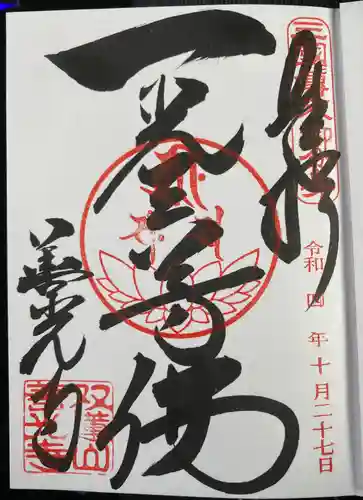 奉拝
令和 四 年 十月二十七日
一光三尊佛
善光寺
善光寺